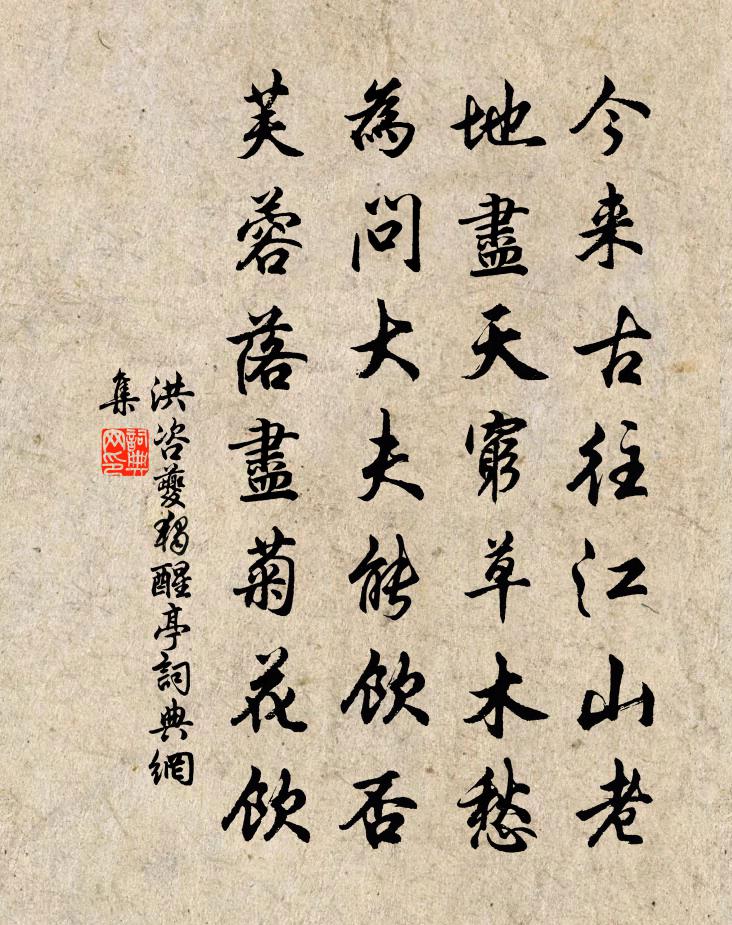 今来古往江山老
地盡天窮草木愁
為問大夫能飲否
芙蓉落盡菊花飲
洪咨夔獨醒亭詞典網
集
詞典
网印